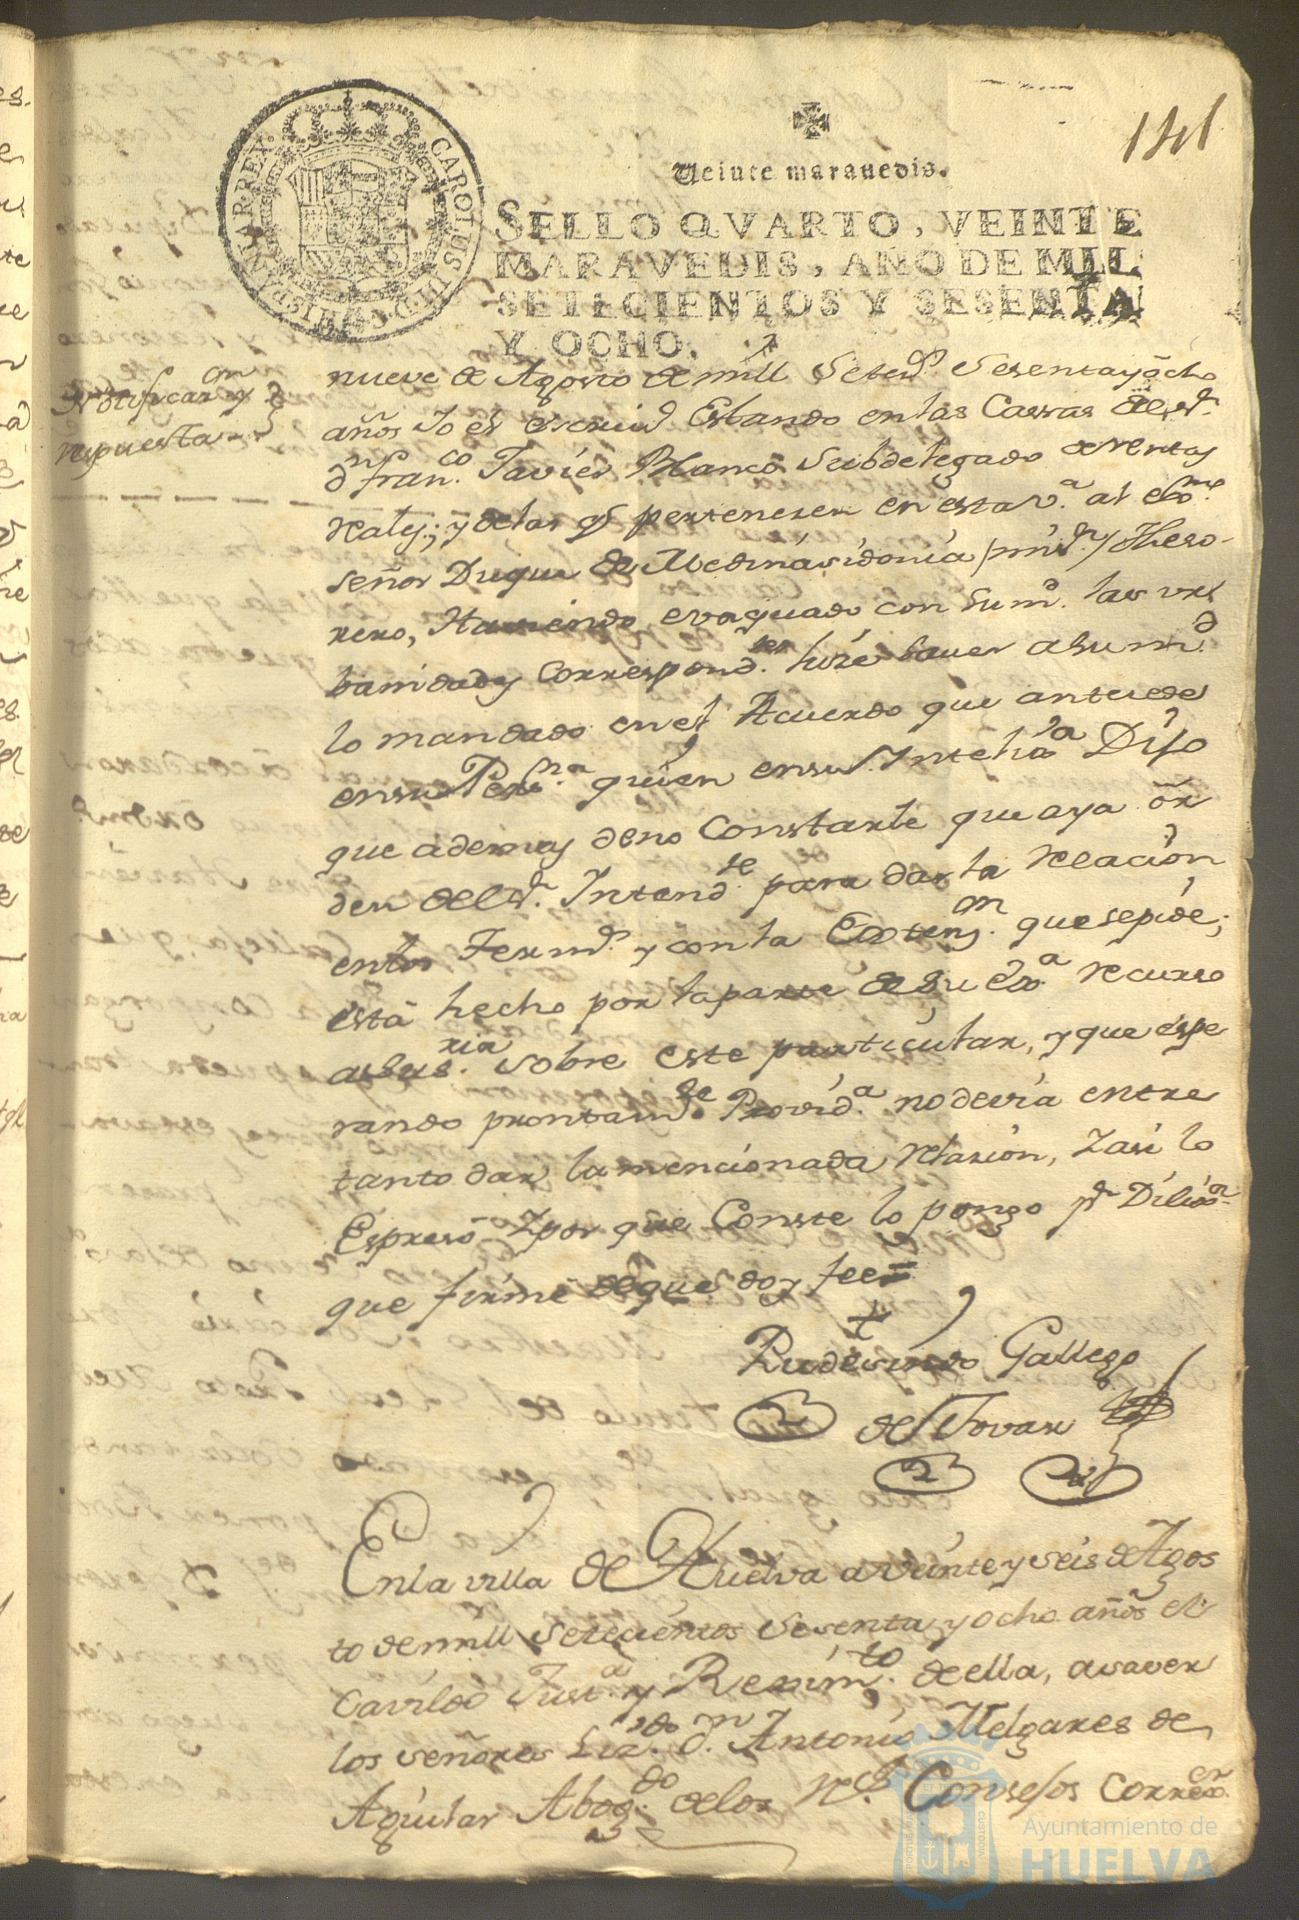 141
Veinte maravedis.
SELLO QVARTO, VEINTE
MARAVEDIS, AÑO DE MIL
SETECIENTOS Y SESENTA
Y OCHO.
CAROLUS III D G HISPANIAR REX
Notificaz.on y
respuesta
nueve de Agosto de mill Seteс.s Sesenta y ocho
años Yo el escriu.o Estando en las Cassas de el s.r
d.n fran.co Javier Blanco Subdelegado de rentas
reales; y de las q.e pertenesen en esta v.a al ex.mo
señor Duque de Medinasidonia /mi s.r/ Theso-
rero, Haviendo evaquado con su m.d las vrs
banidades correspond.tes hize saver a su m.d
lo mandado en el Acuerdo que antecede
en su Pers.na quien en su Intelig.a Dijo
que además de no Constarle que aya ôr
den del s.r Intend.te para dar la relación
en los Term.s y con la Exten.on que se pide;
está hecho por la parte de Su Ex.a recurso
a sus. sobre este particular, y que espe
rando prontam.te Provid.a no devia entre
tanto dar la mencionada relasion, Y asi lo
Espresó Y por que Conste lo pongo p.r Dilix.a
que firmé de que doy fee=
Rudesindo Gallego
de Tovar
En la villa de Huelva a veinte y seis de Agos
to de mill Setecientos Sesenta y ocho años el
Cavildo Just.a y Rexim.to de ella, a saver
los señores Liz.do d.n Antonio Melgares de
Aguilar Abog.do de los R.s Consejos Correx.or
Ayuntamiento de
HUELVA